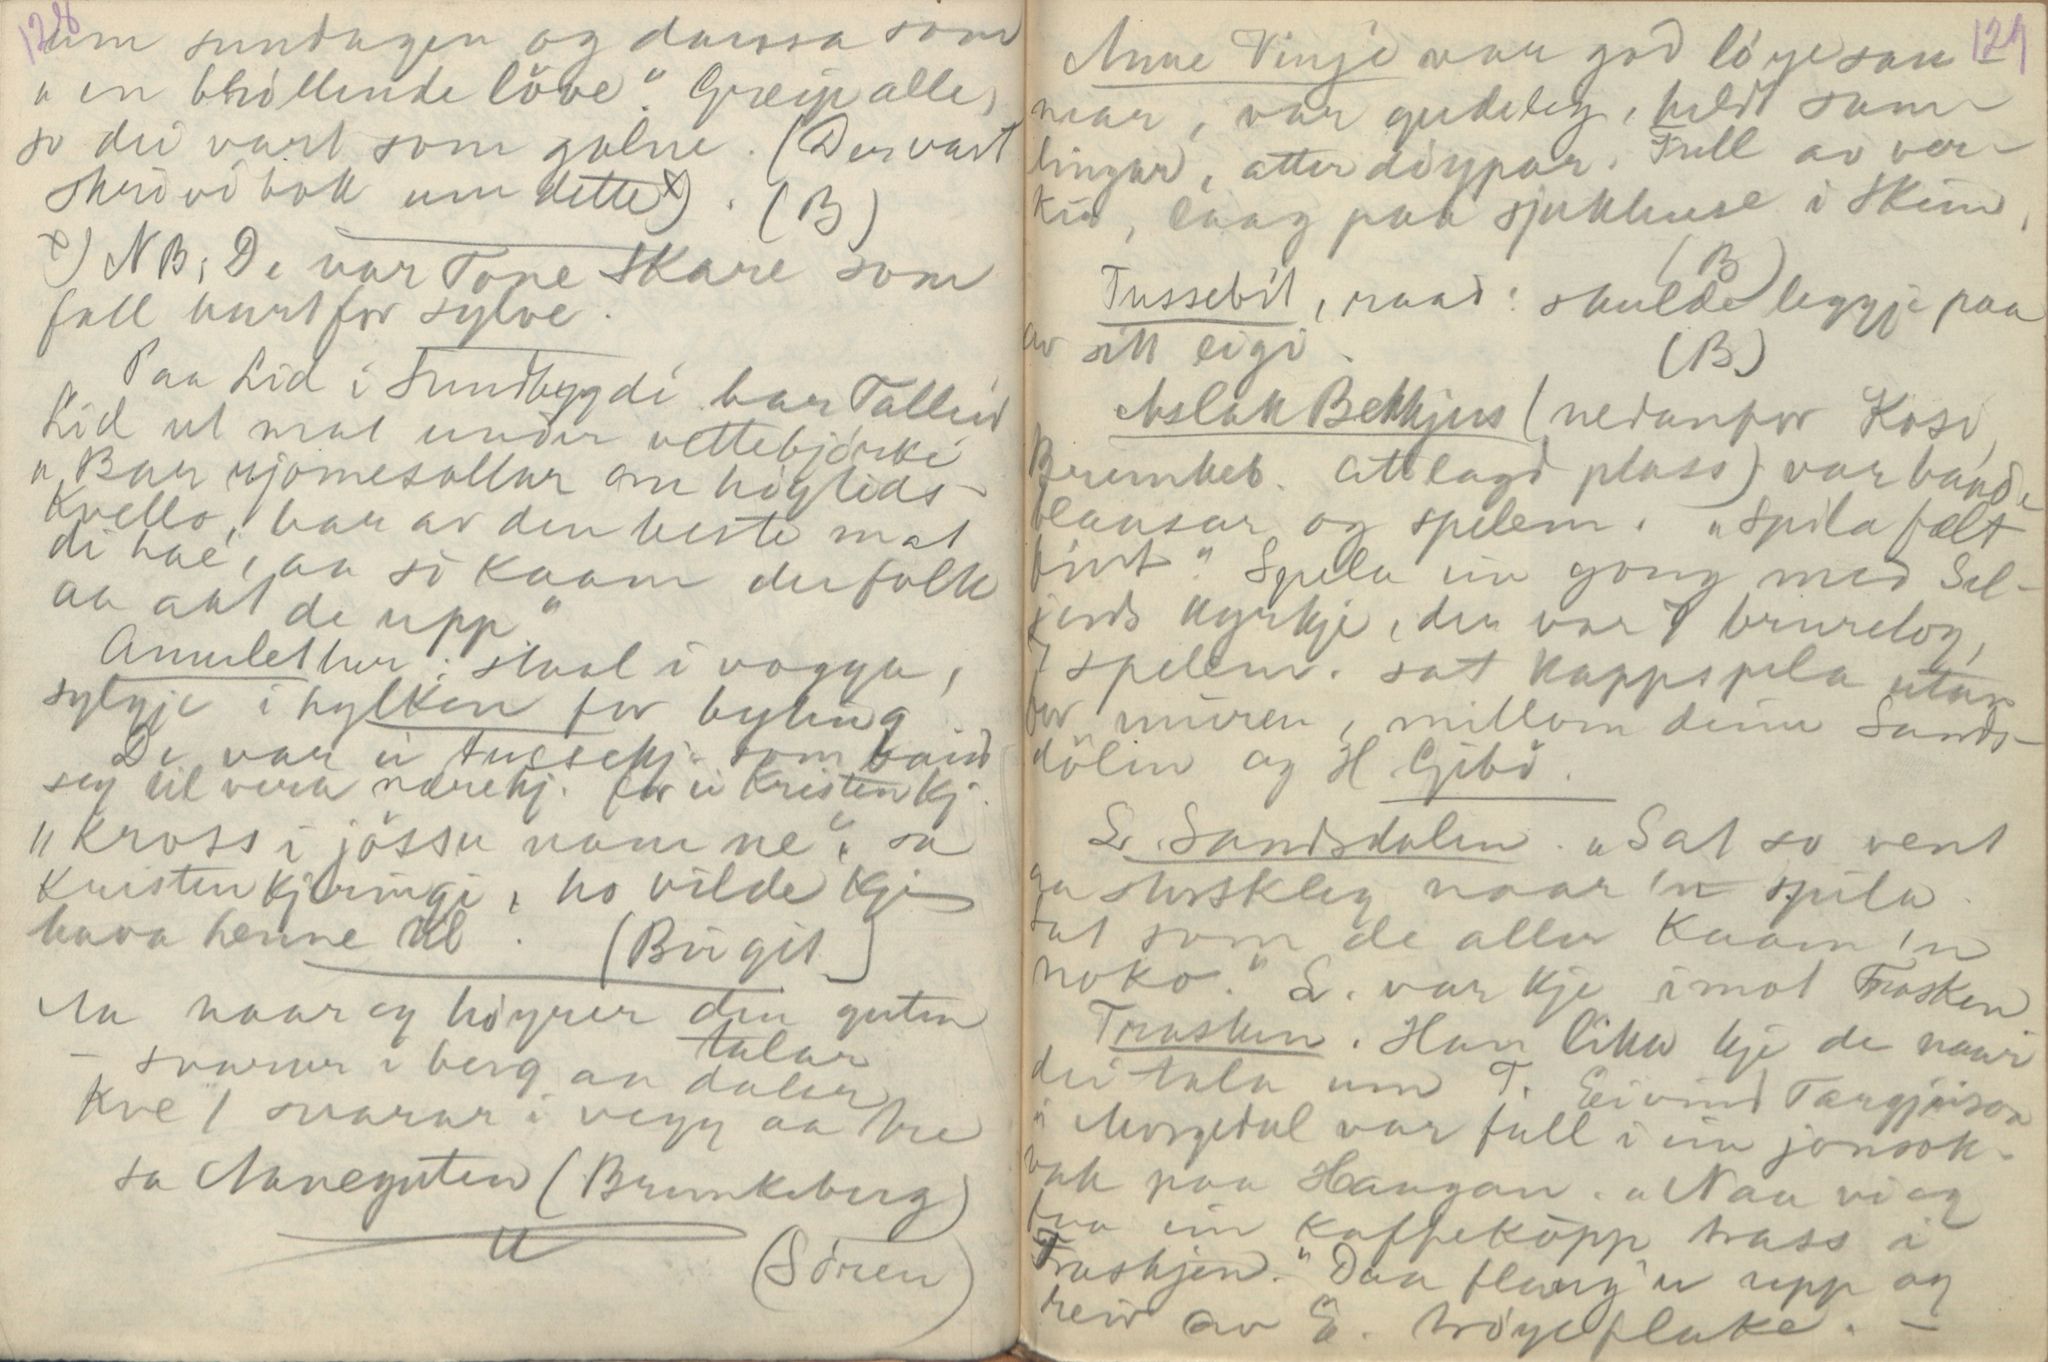 128
um sundagen og dansa som
"en brölende löve". Græip alle,
so dei vart som galne. (Der vart
skrivi bok um dette x). (B)
x) NB; De var Tone Skare som
fall burt for sylve.
Paa Lid i Sundbygdi bar Talleid
Lid ut mat under vettebjørki
"Bar rjomesollar om høgtids-
kvello, bar av den beste mat
di hae, aa so kaam der folk
aa aat de upp"
Amulettur: staal i vogga,
sylgje i hylken for byting
De var ei tussekj. som baud
seg til vera nærekj. for ei kristenkj.
"Kross i jössu namne", sa
kristenkjeringi, ho vilde kje
hava henne til. (Birgit)
Aa naar eg høyrer den guten
talar
– svarar i berg aa dalar
Kve / svarar i vegg aa tre
sa Naneguten (Brunkeberg)
(Sören)
129
Anne Vinje var god løgesau-
mar, var gudeleg, heldt sam-
lingar, atterdöypar. Full av ver-
kir, laag paa sjukhuse i Skien.
(B)
Tussebit, raad: skulde leggje paa
av sitt eigi. (B)
Aslak Bekhjus (nedanfor Kosi,
Brunkeb. attlagd plass) var baade
dansar og spelem. "Spila fælt
fint". Spela ein gong med Sel-
jords kyrkje, der var 7 brurelog,
7 spelem. sat kappspela utan
for muren, millom deim Sands-
dölin og H Gibö.
L. Sandsdalen. "Sat so vent
ga stuskleg naar 'n spila.
Sat som de aller kaam 'n
noko." L. var kje imot Trasken
Trasken. Han lika kje de naar
dei tala um T. Eivind Targjeison
i Morgedal var full i ein jonsok-
vak paa Haugan. "Naa vi eg
faa ein kaffeköpp trass i
Traskjen." Daa flaug 'n upp og
reiv av E. tröyeflake. –